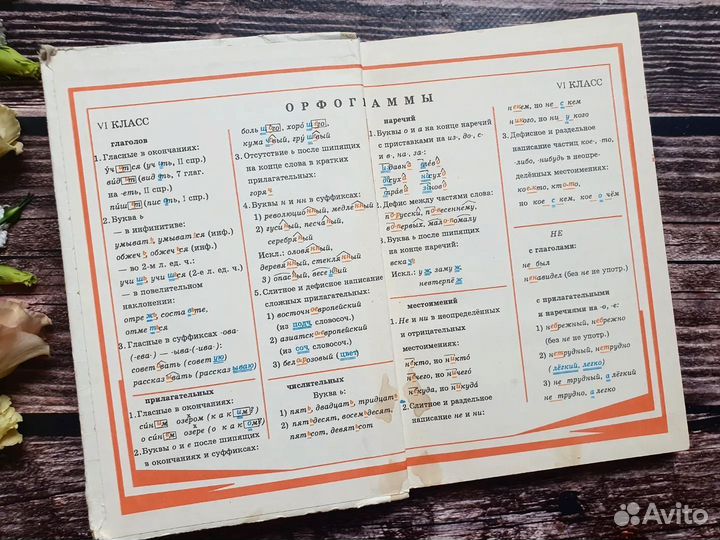 VI КЛАСС
ОРФОГРАММЫ
VI КЛАСС
глаголов
1. Гласные в окончаниях:
у́чит ся (уч ить, II спр.)
ви́дит (вид еть, 7 глаг.
на -еть, II спр.)
пи́шет (пис ать, 1 спр.)
2. Буква ь
— в инфинитиве:
умывать, умываться (инф.)
обжечь, обжечься (инф.)
— во 2-м л. ед. ч.:
учишь, учишься (2-е л. ед. ч.)
— в повелительном
наклонении:
отрежь, составьте,
отметься
3. Гласные в суффиксах -ова-
(-ева-) — -ыва-(-ива-):
советовать (советую)
рассказывать (рассказываю)
прилагательных
1. Гласные в окончаниях:
си́ним озером (каким?)
о си́нем озере (о каком?)
2. Буквы о и е после шипящих
в окончаниях и суффиксах:
большого, хорошего,
кумачовый, грушевый
3. Отсутствие ь после шипящих
на конце слова в кратких
прилагательных:
горяч
4. Буквы н и нн в суффиксах:
1) революционный, медленный
2) гусиный, песчаный,
серебряный
Искл.: оловянный,
деревянный, стеклянный
3) безопасный, весенний
5. Слитное и дефисное написание
сложных прилагательных:
1) восточноевропейский
(из подч словосоч.)
2) азиатско-европейский
(из соч словосоч.)
3) бело-розовый (цвет)
числительных
Буква ь:
1) пять, двадцать, тридцать
2) пятьдесят, восемьдесят,
пятьсот, девятьсот
наречий
1. Буквы о и а на конце наречий
с приставками на из-, до-, с-
и в-, на-, за-:
издавна влево
досуха насухо
справа заново
2. Дефис между частями слова:
по-русски, по-весеннему,
во-первых, мало-помалу
3. Буква ь после шипящих
на конце наречий:
вскачь
Искл.: уж замуж
невтерпёж
местоимений
1. Не и ни в неопределённых
и отрицательных
местоимениях:
не́кто, но никто́
не́чего, но ничего́
не́куда, но никуда́
2. Слитное и раздельное
написание не и ни:
некем, но не с кем
никого, но ни у кого
3. Дефисное и раздельное
написание частиц кое-, то,
либо, -нибудь в неопре-
делённых местоимениях:
кое-кто, кто-то,
но кое с кем, кое о чём
НЕ
с глаголами:
не был
ненавидел (без не не употр.)
с прилагательными
и наречиями на -о, -е:
1) небрежный, небрежно
(без не не употр.)
2) нетрудный, нетрудно
(лёгкий, легко)
3) не трудный, а лёгкий
не трудно, а легко
Avito